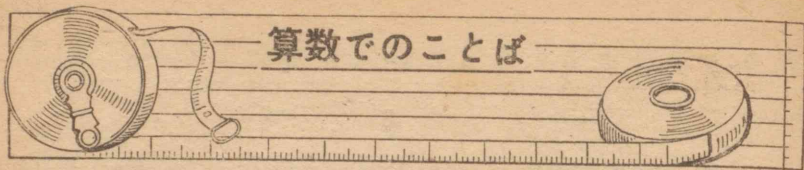 算数でのことば